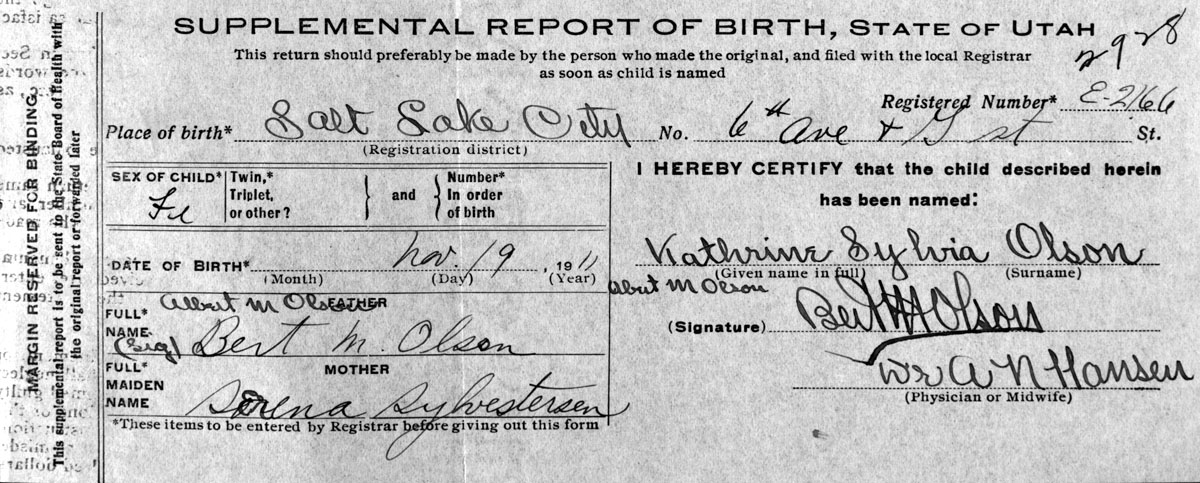 SUPPLEMENTAL REPORT OF BIRTH, STATE OF UTAH
2928
This return should preferably be made by the person who made the original, and filed with the local Registrar
as soon as child is named
Registered Number* E-2166
Place of birth* Salt Lake City No. 6th Ave + G st St.
(Registration district)
SEX OF CHILD* Fe
Twin,*
Triplet,
or other?
and
Number*
In order
of birth
DATE OF BIRTH* Nov. 19, 1911
(Month) (Day) (Year)
Albert M Olson
FATHER
FULL*
NAME
(Sig) Bert M. Olson
FULL* MOTHER
MAIDEN
NAME Sorena Sylvestersen
*These items to be entered by Registrar before giving out this form
I HEREBY CERTIFY that the child described herein
has been named:
Kathrine Sylvia Olson
(Given name in full) (Surname)
Albert M Olson
(Signature) Bert M Olson
Dr A N Hansen
(Physician or Midwife)
MARGIN RESERVED FOR BINDING.
This supplemental report is to be sent to the State Board of Health with
the original report or forwarded later